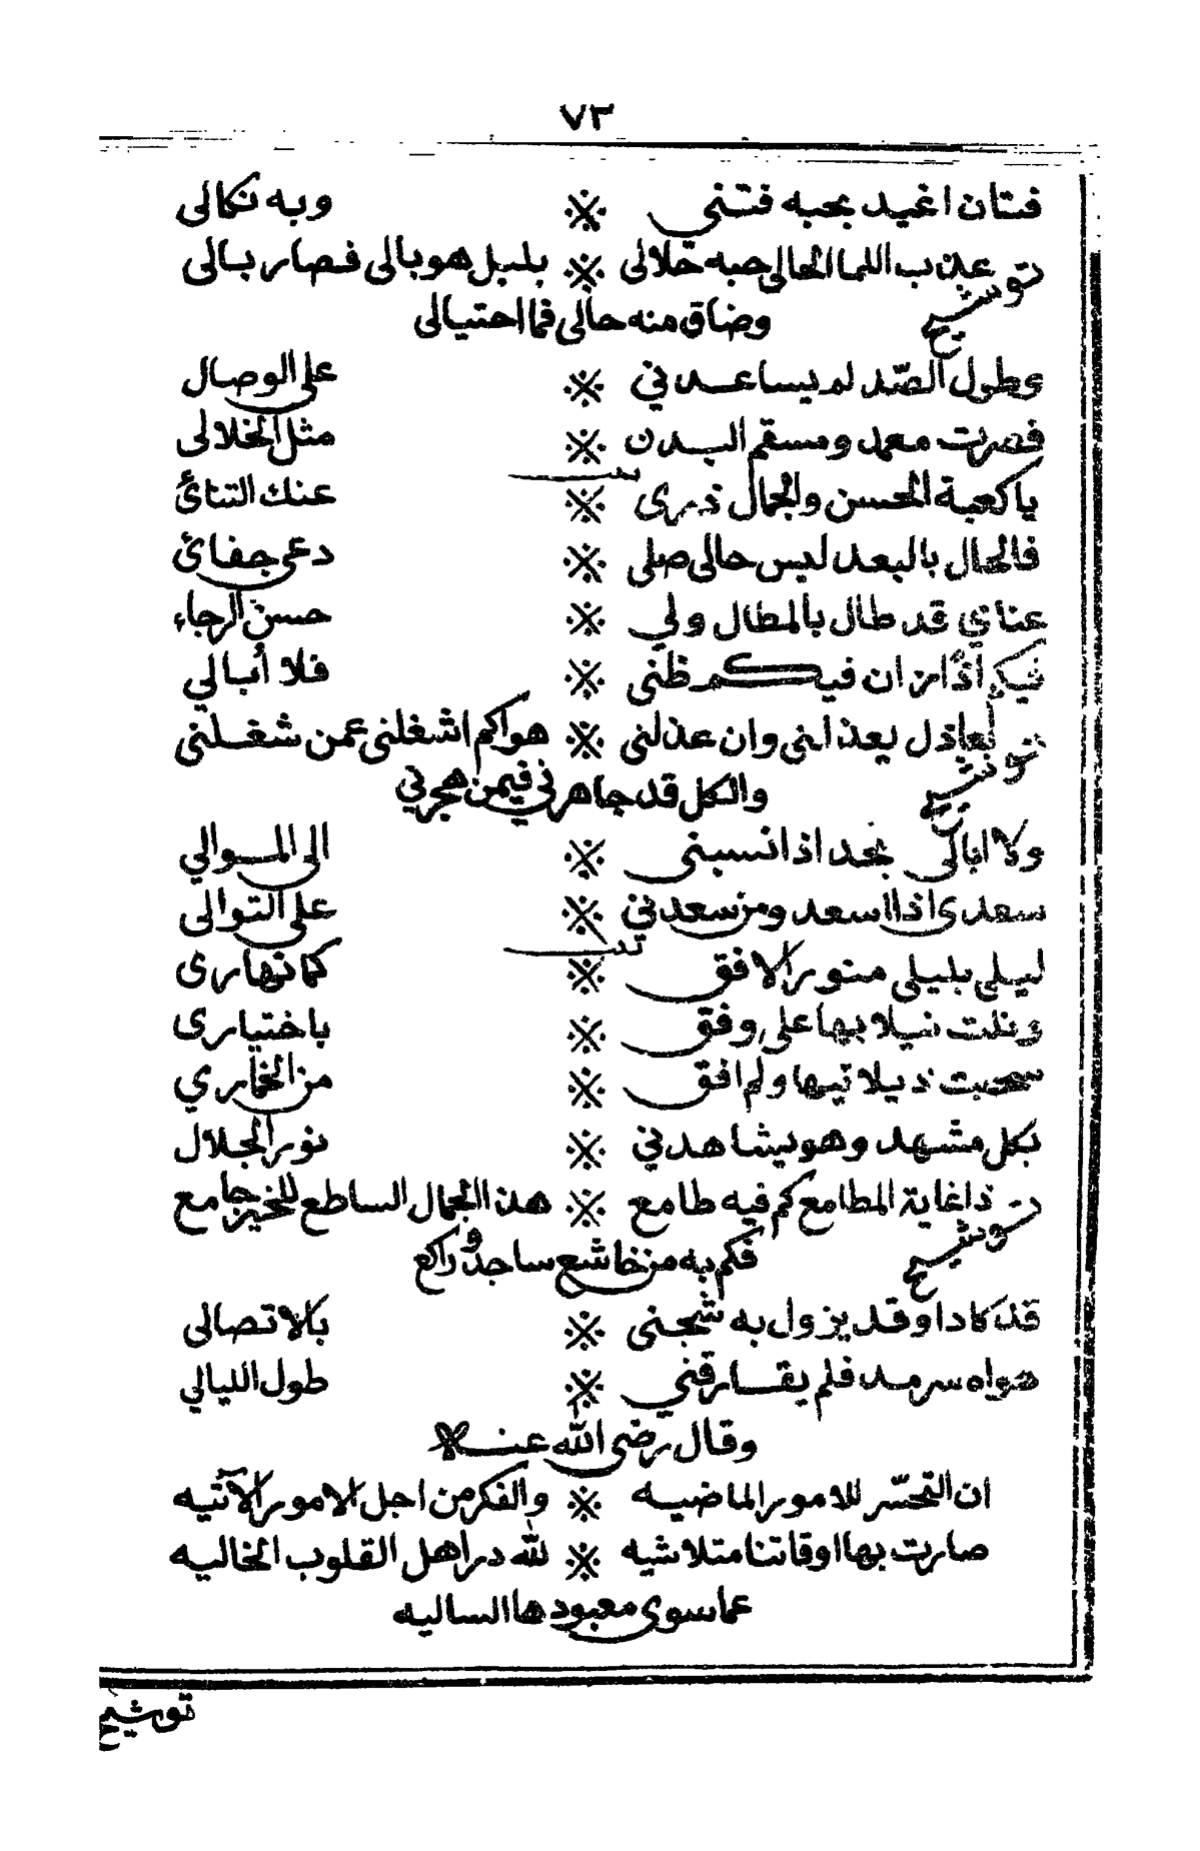 ٧٣
فتان اغيد بحبه فتنني ※ وبه نكالى
توشيح عذب اللما الحالى حبه حلالى ※ بلبل هو بالى فصار بالى
وضاق منه حالى فما احتيالى
وطول الصّد لم يساعدني ※ على الوصال
فصرت معمد ومسقم البدن ※ مثل الخلالى
بيت
ياكعبة الحسن والجمال ذرى ※ عنك التنائ
فالحال بالبعد ليس حالى صلى ※ دعى جفائ
عناي قد طال بالمطال ولي ※ حسن الرجاء
ان فيكم ظنى ※ فلا أبالي
توشيح يعذلنى وان عذلنى ※ هواكم اشغلنى عمن شغلنى
والكل قد جاهرني فيمن هجرني
ولا ابالى بحد اذا نسبنى ※ الى الموالي
سعدى اذا اسعد ومن سعدني ※ على التوالى
بيت
ليلى بليلى منور الافق ※ كما نهارى
ونلت نيلا بها على وفق ※ باختيارى
سحبت ذيلا تيها ولم افق ※ من الخماري
بكل مشهد وهو يشاهدني ※ نور الجلال
توشيح ذا غاية المطامع كم فيه طامع ※ هذا الجمال الساطع للخير جامع
فكم به من خاشع ساجد وراكع
قد كاد او قد يزول به شجنى ※ بالاتصالى
هواه سرمد فلم يفارقني ※ طول الليالي
وقال رضى الله عنه
ان التحسّر للامور الماضيه ※ والفكر من اجل الامور الآتيه
صارت بها اوقاتنا متلاشيه ※ لله در اهل القلوب الخاليه
عما سوى معبودها الساليه
توشيح